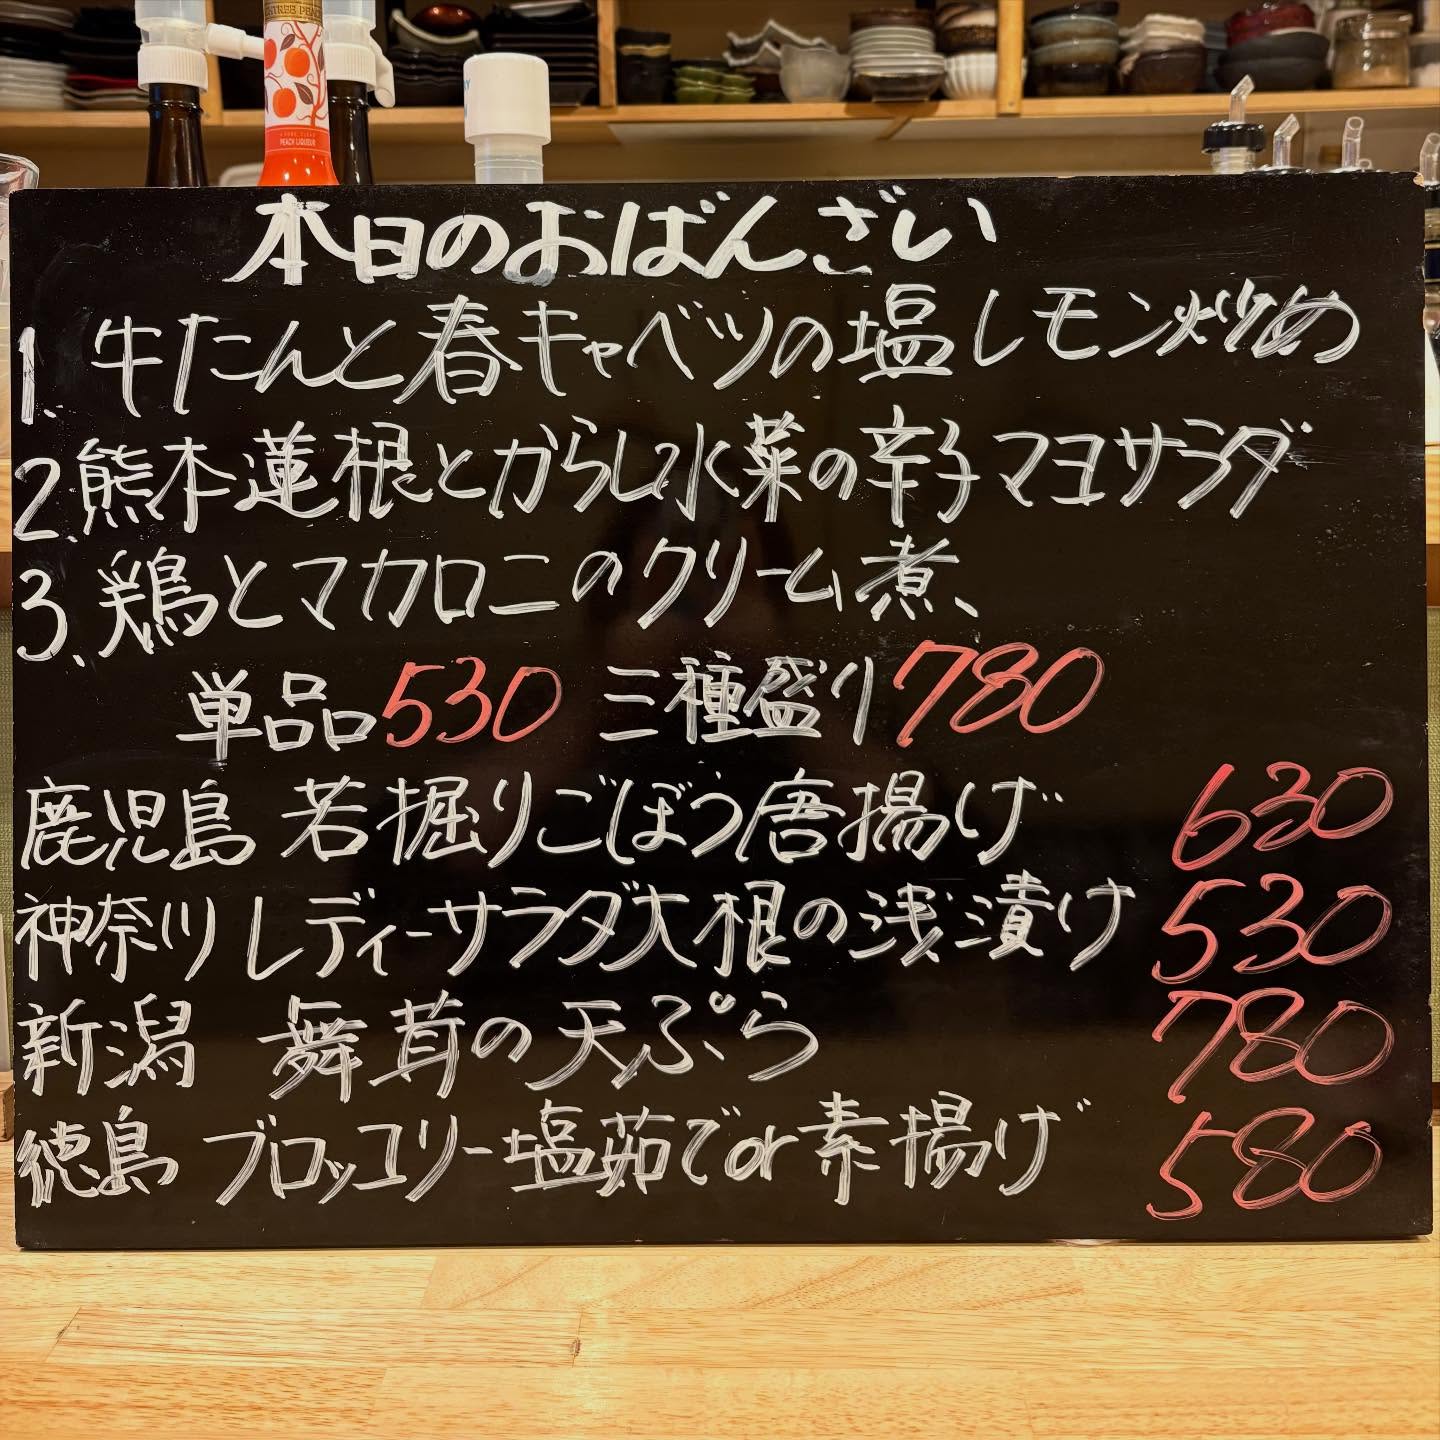 PEACH LIQUEUR
本日のおばんざい
1. 牛たんと春キャベツの塩レモン炒め
2. 熊本蓮根とからし水菜の辛子マヨサラダ
3. 鶏とマカロニのクリーム煮
単品530 三種盛り780
鹿児島 若掘りごぼう唐揚げ 630
神奈川 レディーサラダ大根の浅漬け 530
新潟 舞茸の天ぷら 780
徳島 ブロッコリー塩茹でor素揚げ 580